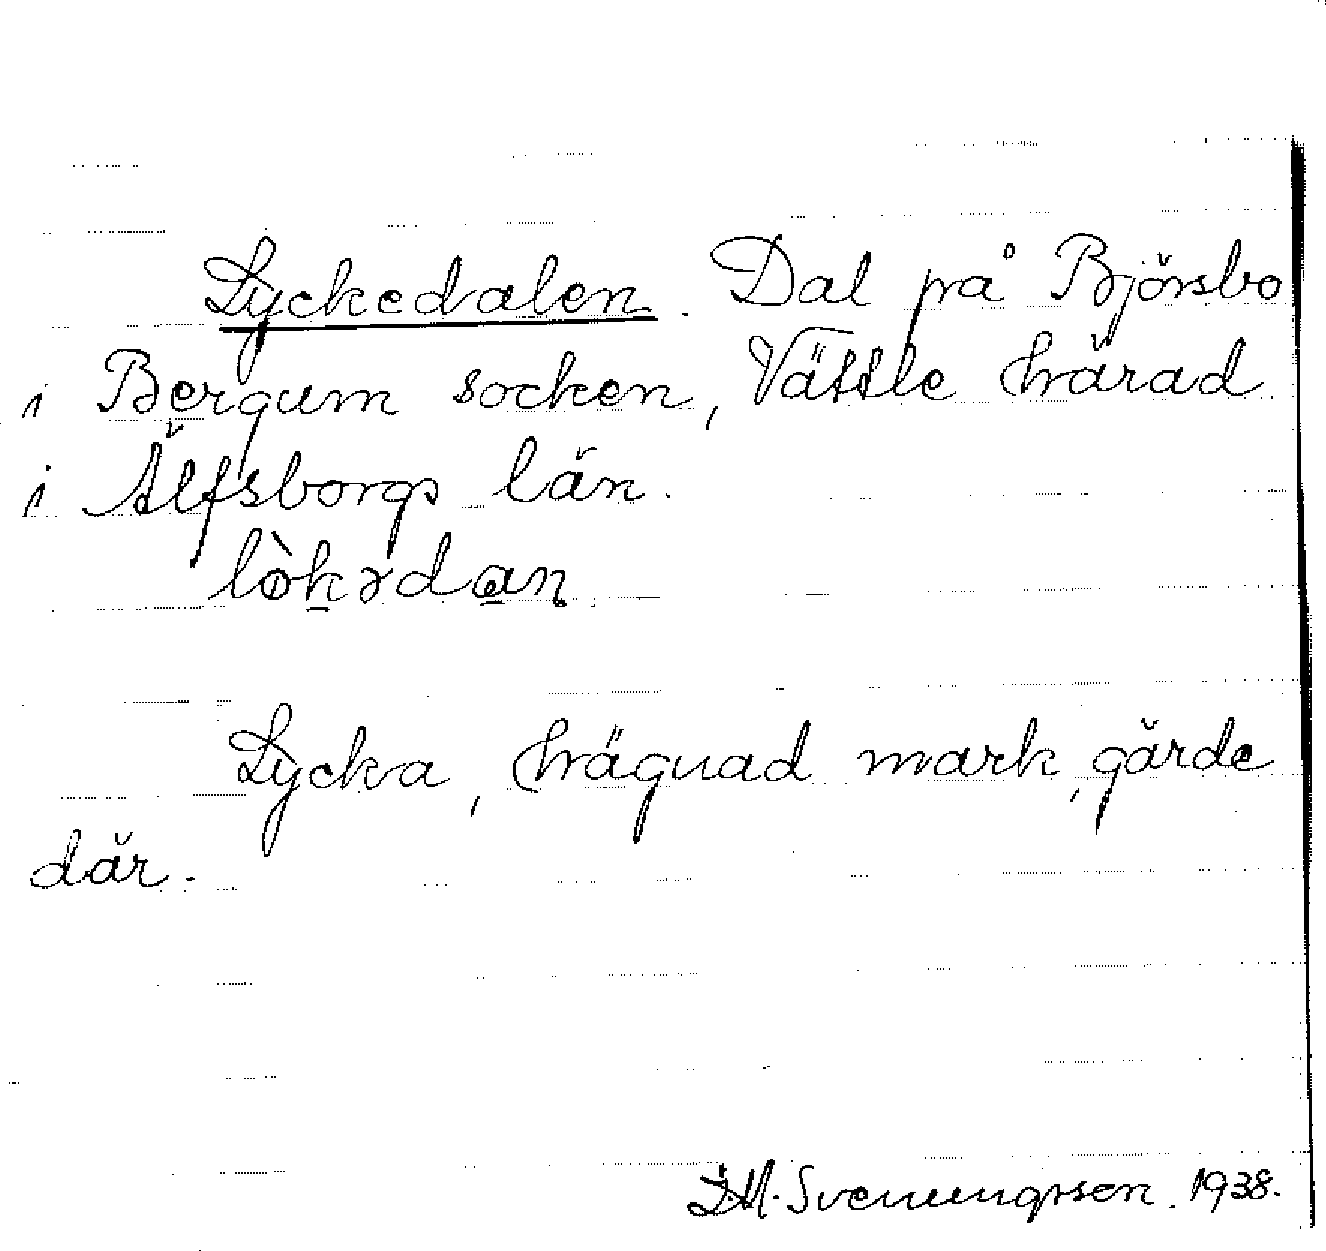 Lyckedalen. Dal på Björsbo
i Bergum socken, Vättle härad
i Älfsborgs län.
lòkədan
Lycka, hägnad mark, gärde
där.
Svenungsson. 1938.